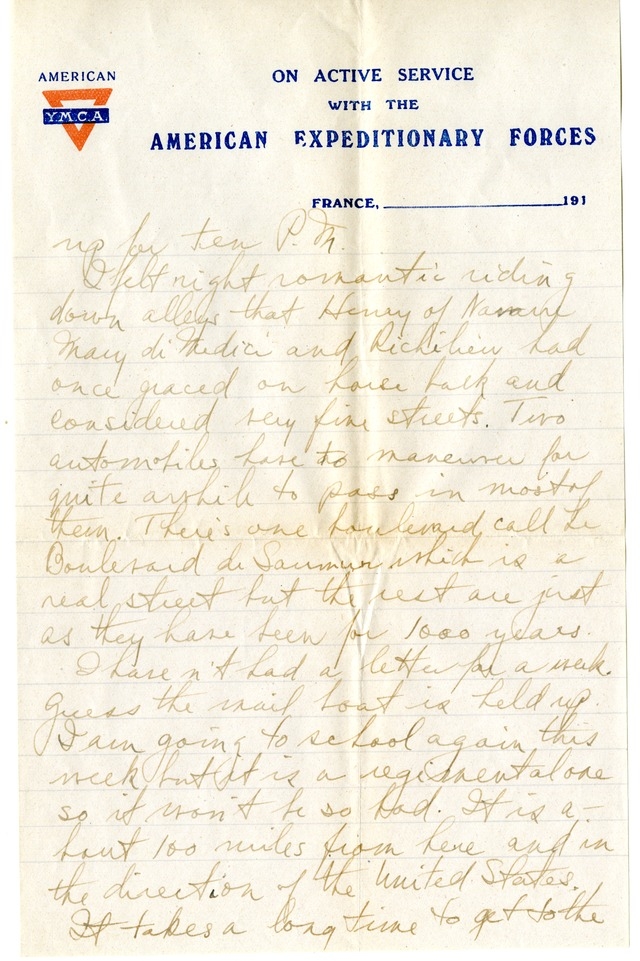 AMERICAN
Y.M.C.A.
ON ACTIVE SERVICE
WITH THE
AMERICAN EXPEDITIONARY FORCES
FRANCE, 191
up by ten P.M.
I felt right romantic riding
down alleys that Henry of Navarre
Mary di Medici and Richilieu had
once graced on horse back and
considered very fine streets. Two
automobiles have to maneuver for
quite awhile to pass in most of
them. There's one boulevard call Le
Boulevard de Saumur which is a
real street but the rest are just
as they have been for 1000 years.
I have n't had a letter for a week.
Guess the mail boat is held up.
I am going to school again this
week but it is a regimental one
so it won't be so bad. It is a-
bout 100 miles from here and in
the direction of the United States.
It takes a long time to get to the